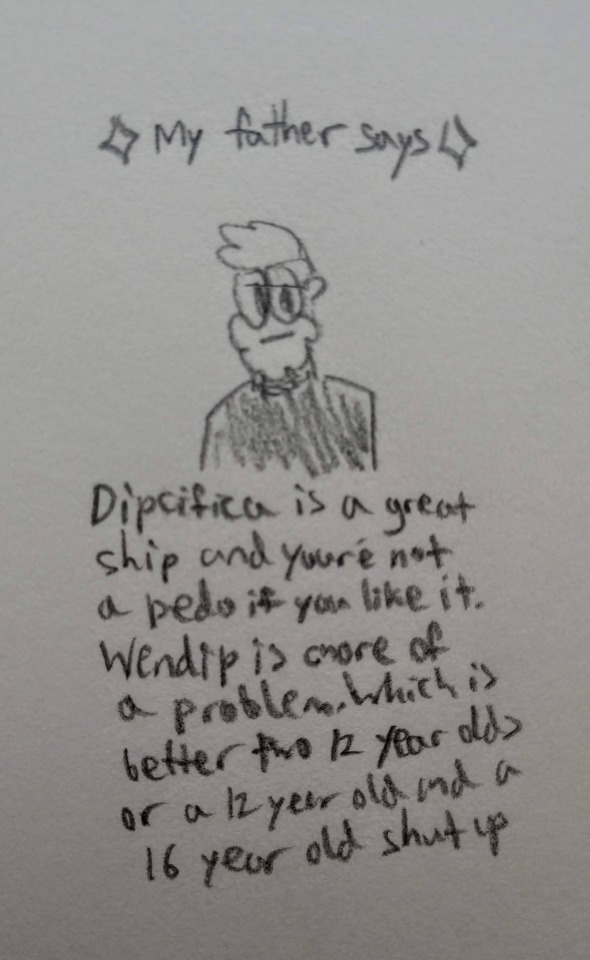 My father says
Dipcifica is a great
ship and youre not
a pedo if you like it.
Wendip is more of
a problem. Which is
better two 12 year olds
or a 12 year old and a
16 year old shut up